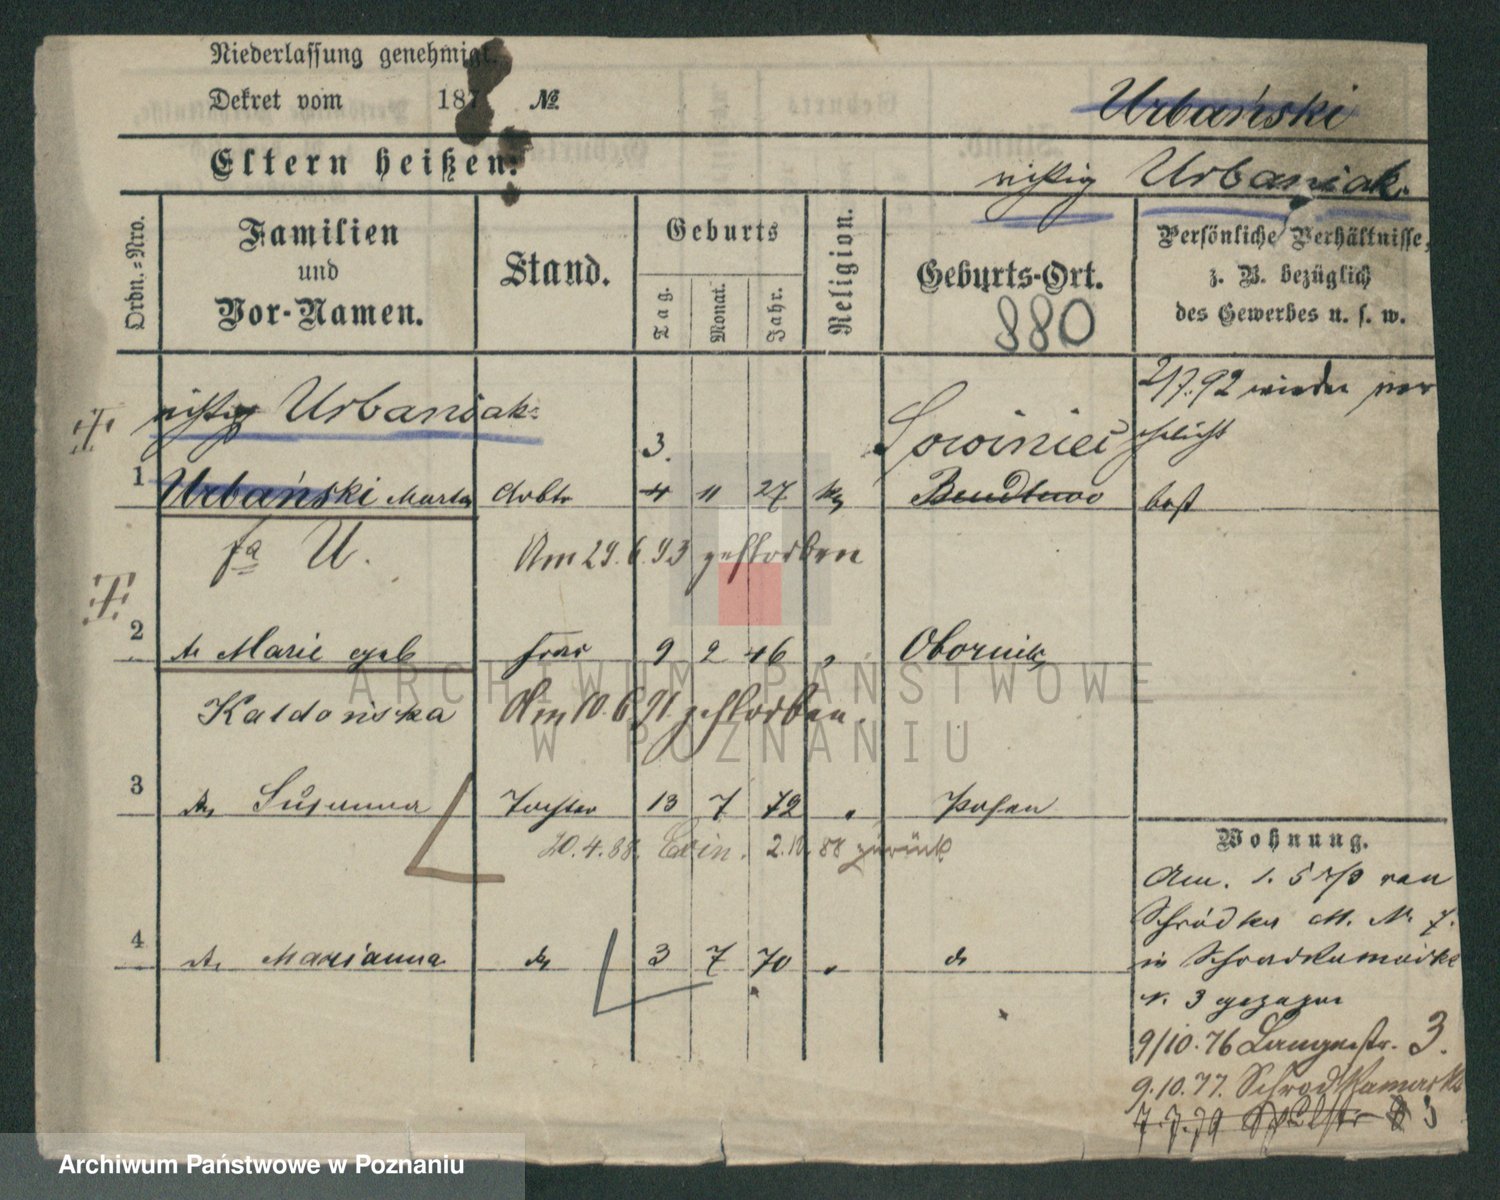 Niederlassung genehmigt.
Dekret vom 187 №
Urbański
Eltern heißen:
richtig Urbaniak.
Ordn.=Nro.
Familien
und
Vor-Namen.
Stand.
Geburts
Tag.
Monat.
Jahr.
Religion.
Geburts-Ort.
880
Persönliche Verhältnisse,
z. B. bezüglich
des Gewerbes u. s. w.
richtig Urbaniak
3.
Sowiniec
2/7.92 wieder ver
ehelicht
1 Urbański Martin Arbtr 4 11 27 kq Bendlewo
fa U.
Am 29.6.93 gestorben
2 Marie geb Frau 9 2 46 Obornik
Kaldonska
Am 10.6.91. gestorben.
3 Susanna Tochter 13 7 72 Posen
20.4.88. Exin. 2.10.88 zurück
4 Marianna do 3 7 70 do
Wohnung.
Am. 1. 5 von
Schrodka M. N. 7.
in Schrodkamarkt
N. 3 gezogen
9/10.76 Langestr. 3.
9.10.77. Schrodkamarkt
7.7.79 3
ARCHIWUM PAŃSTWOWE
W POZNANIU
Archiwum Państwowe w Poznaniu